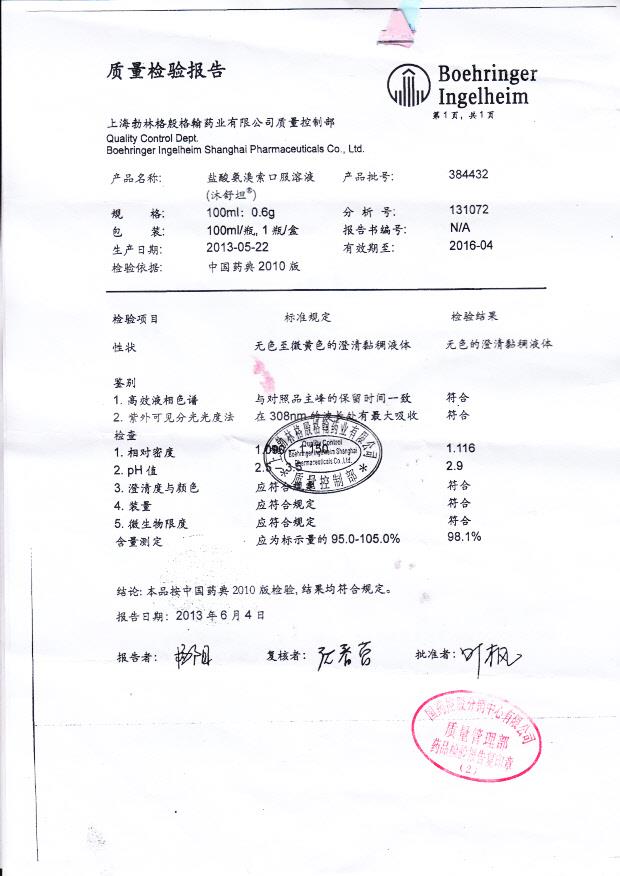 质量检验报告
Boehringer
Ingelheim
第1页, 共1页
上海勃林格殷格翰药业有限公司质量控制部
Quality Control Dept.
Boehringer Ingelheim Shanghai Pharmaceuticals Co., Ltd.
产品名称: 盐酸氨溴索口服溶液 产品批号: 384432
(沐舒坦®)
规 格: 100ml: 0.6g 分 析 号: 131072
包 装: 100ml/瓶, 1瓶/盒 报告书编号: N/A
生产日期: 2013-05-22 有效期至: 2016-04
检验依据: 中国药典 2010 版
检验项目 标准规定 检验结果
性状 无色至微黄色的澄清黏稠液体 无色的澄清黏稠液体
鉴别
1. 高效液相色谱 与对照品主峰的保留时间一致 符合
2. 紫外可见分光光度法 在 308nm 的波长处有最大吸收 符合
检查
1. 相对密度 1.150 1.116
2. pH 值 2.5 3.5 2.9
3. 澄清度与颜色 应符合规定 符合
4. 装量 应符合规定 符合
5. 微生物限度 应符合规定 符合
含量测定 应为标示量的 95.0-105.0% 98.1%
上海勃林格殷格翰药业有限公司
Quality Control
Boehringer Ingelheim Shanghai
Pharmaceuticals Co.,Ltd.
质量控制部
结论: 本品按中国药典 2010 版检验, 结果均符合规定。
报告日期: 2013 年 6 月 4 日
报告者: 复核者: 批准者: 叶枫
国药控股分销中心有限公司
质量管理部
药品检验报告复印章
(2)